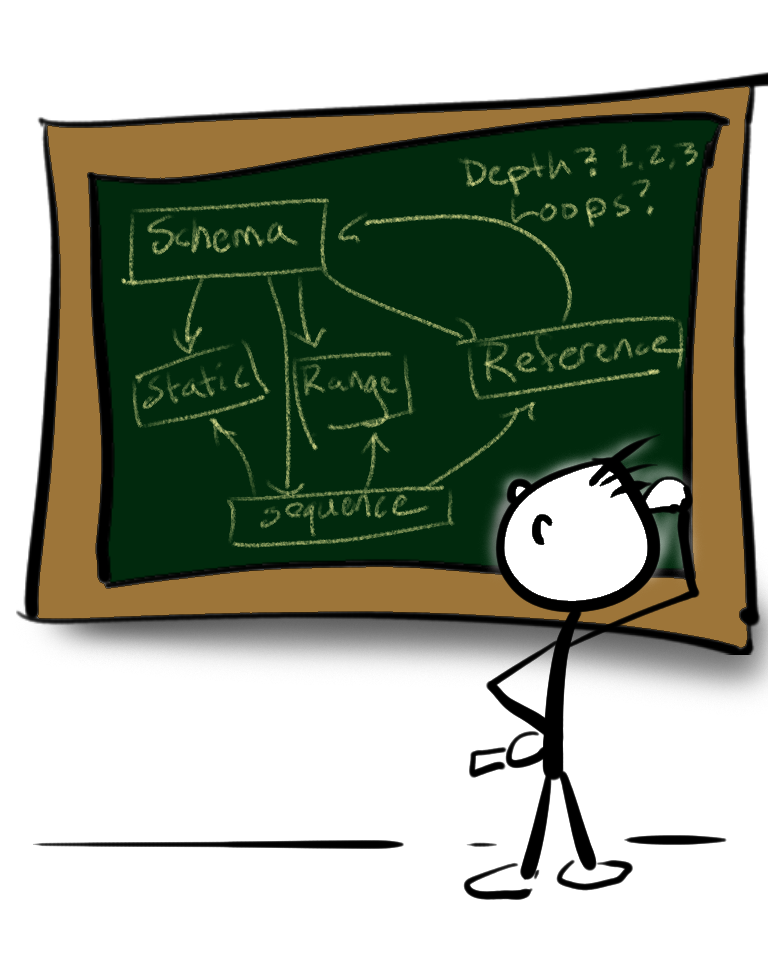 Depth? 1,2,3
Loops?
Schema
Static
Range
Reference
sequence